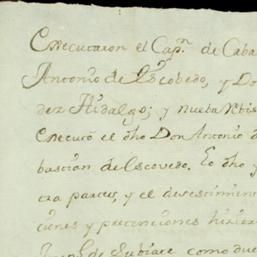 Executaron el Capn. de Caba
Antonio de Escobedo, y Do
dez Hidalgo; y nueba
executó el dho Don Antonio d
bastian de Escovedo. Lo dho y
tra partes, y el desestimien
ciones y pretenciones hizier
de Subiate como due